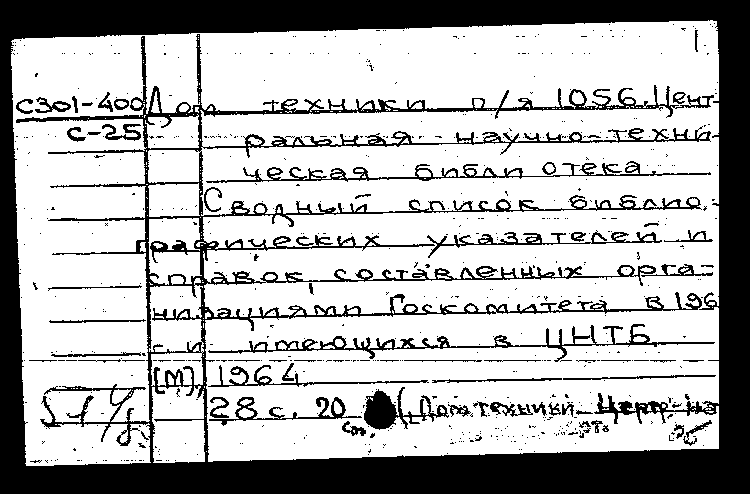 С301-400 Дом техники п/я 1056. Цент-
С-25 ральная научно-техни-
ческая библиотека.
Сводный список библио-
графических указателей и
справок, составленных орга-
низациями Госкомитета в 196
- и имеющихся в ЦНТБ.
[М], 1964
28 с. 20 см. (Дом техники